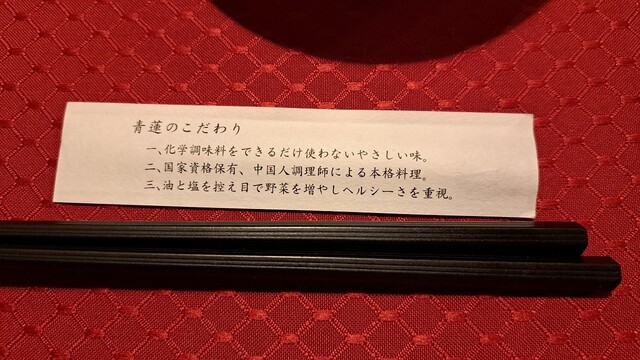 青蓮のこだわり
一、化学調味料をできるだけ使わないやさしい味。
二、国家資格保有、中国人調理師による本格料理。
三、油と塩を控え目で野菜を増やしヘルシーさを重視。